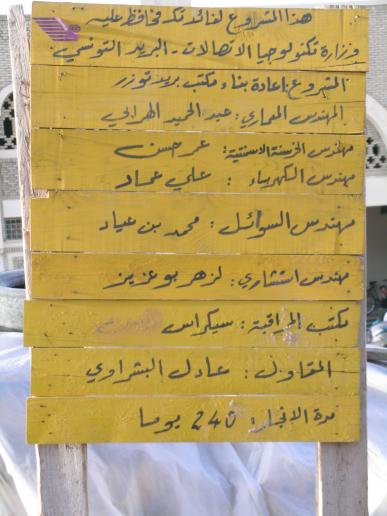 هذا المشروع لفائدتك فحافظ عليه
وزارة تكنولوجيا الاتصالات - البريد التونسي
المشروع: إعادة بناء مكتب بريد توزر
المهندس المعماري: عبد الحميد الهرابي
مهندس الخرسنة الاسمنتية: عمر حسن
مهندس الكهرباء: علي عماد
مهندس السوائل: محمد بن عياد
مهندس استشاري: لزهر بوعزيز
مكتب المراقبة: سيكراس
المقاول: عادل البشراوي
مدة الانجاز: 240 يوما